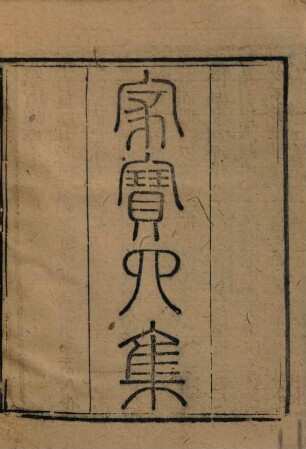 家寶四集